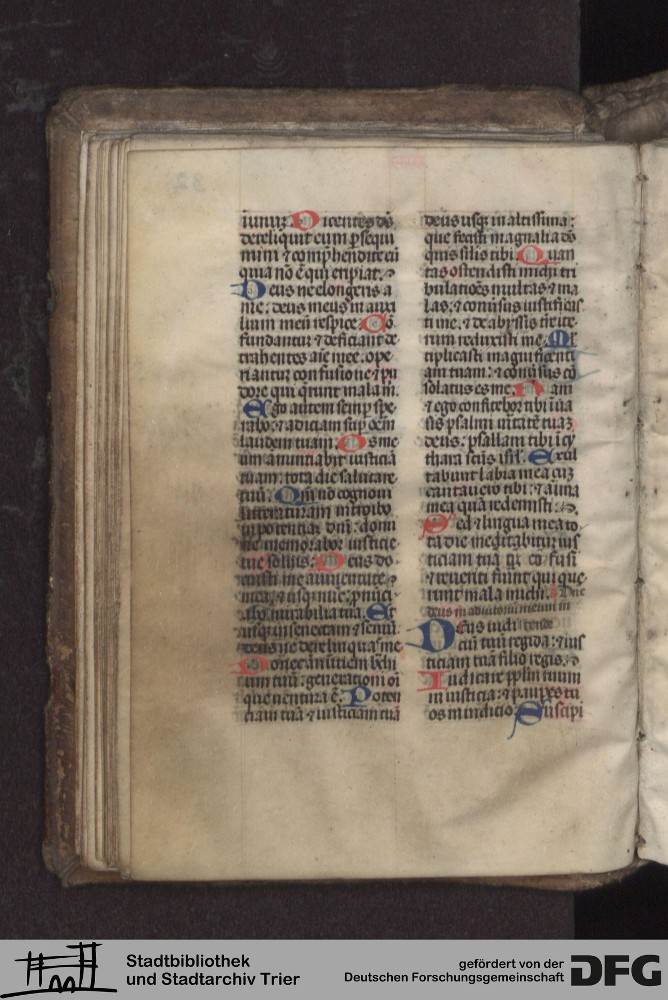 iunuz Dicentes ds
dereliquit eum psequi
mini ⁊ comphendite eū
quia nō ē qui eripiat
Deus ne elongeris a
me: deus meus in auxi
lium meū respice Cō
fundantur ⁊ deficiant de
trahentes aīe mee. ope
riantur confusione ⁊ pu
dore qui qrunt mala m.
Ego autem semp spe
rabo: ⁊ adiciam sup oēm
laudem tuam. Os me
um annunciabit iusticiā
tuam: tota die salutare
tuū: Qm nō cognoui
litteraturam introibo
in potentias dni: domi
ne memorabor iusticie
tue solius: Deus do
cuisti me a iuuentute
mea: ⁊ usq nūc pnūci
abo mirabilia tua Et
usq in senectam ⁊ seniū:
deus ne derelinquas me
Donec annūtiem bchi
um tuū: generationi oī
que uentura ē. Poten
ciam tuā ⁊ iusticiam tuā
deus usq in altissima:
que fecisti magnalia ds
quis silis tibi Quan
tas ostendisti michi tri
bulatiōes multas ⁊ ma
las: ⁊ conūsus uiuificas
ti me: ⁊ de abyssis tre ite
rum reduxisti me Ml
tiplicasti magnificenti
am tuam: ⁊ conūsus cō
solatus es me Nam
⁊ ego confitebor tibi ī ua
sis psalmi uitatē tuaz
deus: psallam tibi ī cy
thara scūs isrl. Exul
tabunt labia mea cuz
cantauero tibi: ⁊ aīma
mea quā redemisti
Sed ⁊ lingua mea to
ta die meditabitur ius
ticiam tuā cū fusi
⁊ reueriti fuīnt qui que
runt mala michi. Dne
deus in adiutoriū meum in
Deus iudi tende
ciū tuū regi da: ⁊ ius
ticiam tuā filio regis
Iudicare pplm tuum
in iusticia: ⁊ paupes tu
os in iudicio Suscipi
Stadtbibliothek
und Stadtarchiv Trier
gefördert von der
Deutschen Forschungsgemeinschaft
DFG